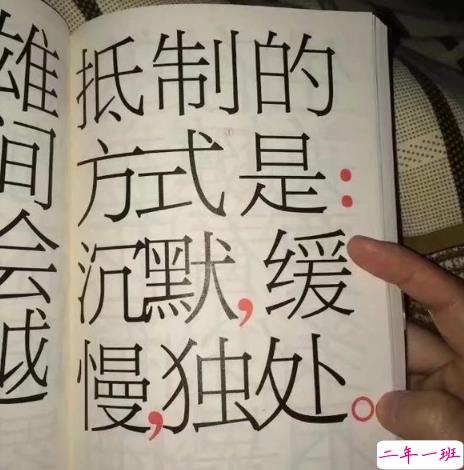 雄
间
会
越
抵制的
方式是：
沉默，缓
慢，独处。
二年一班